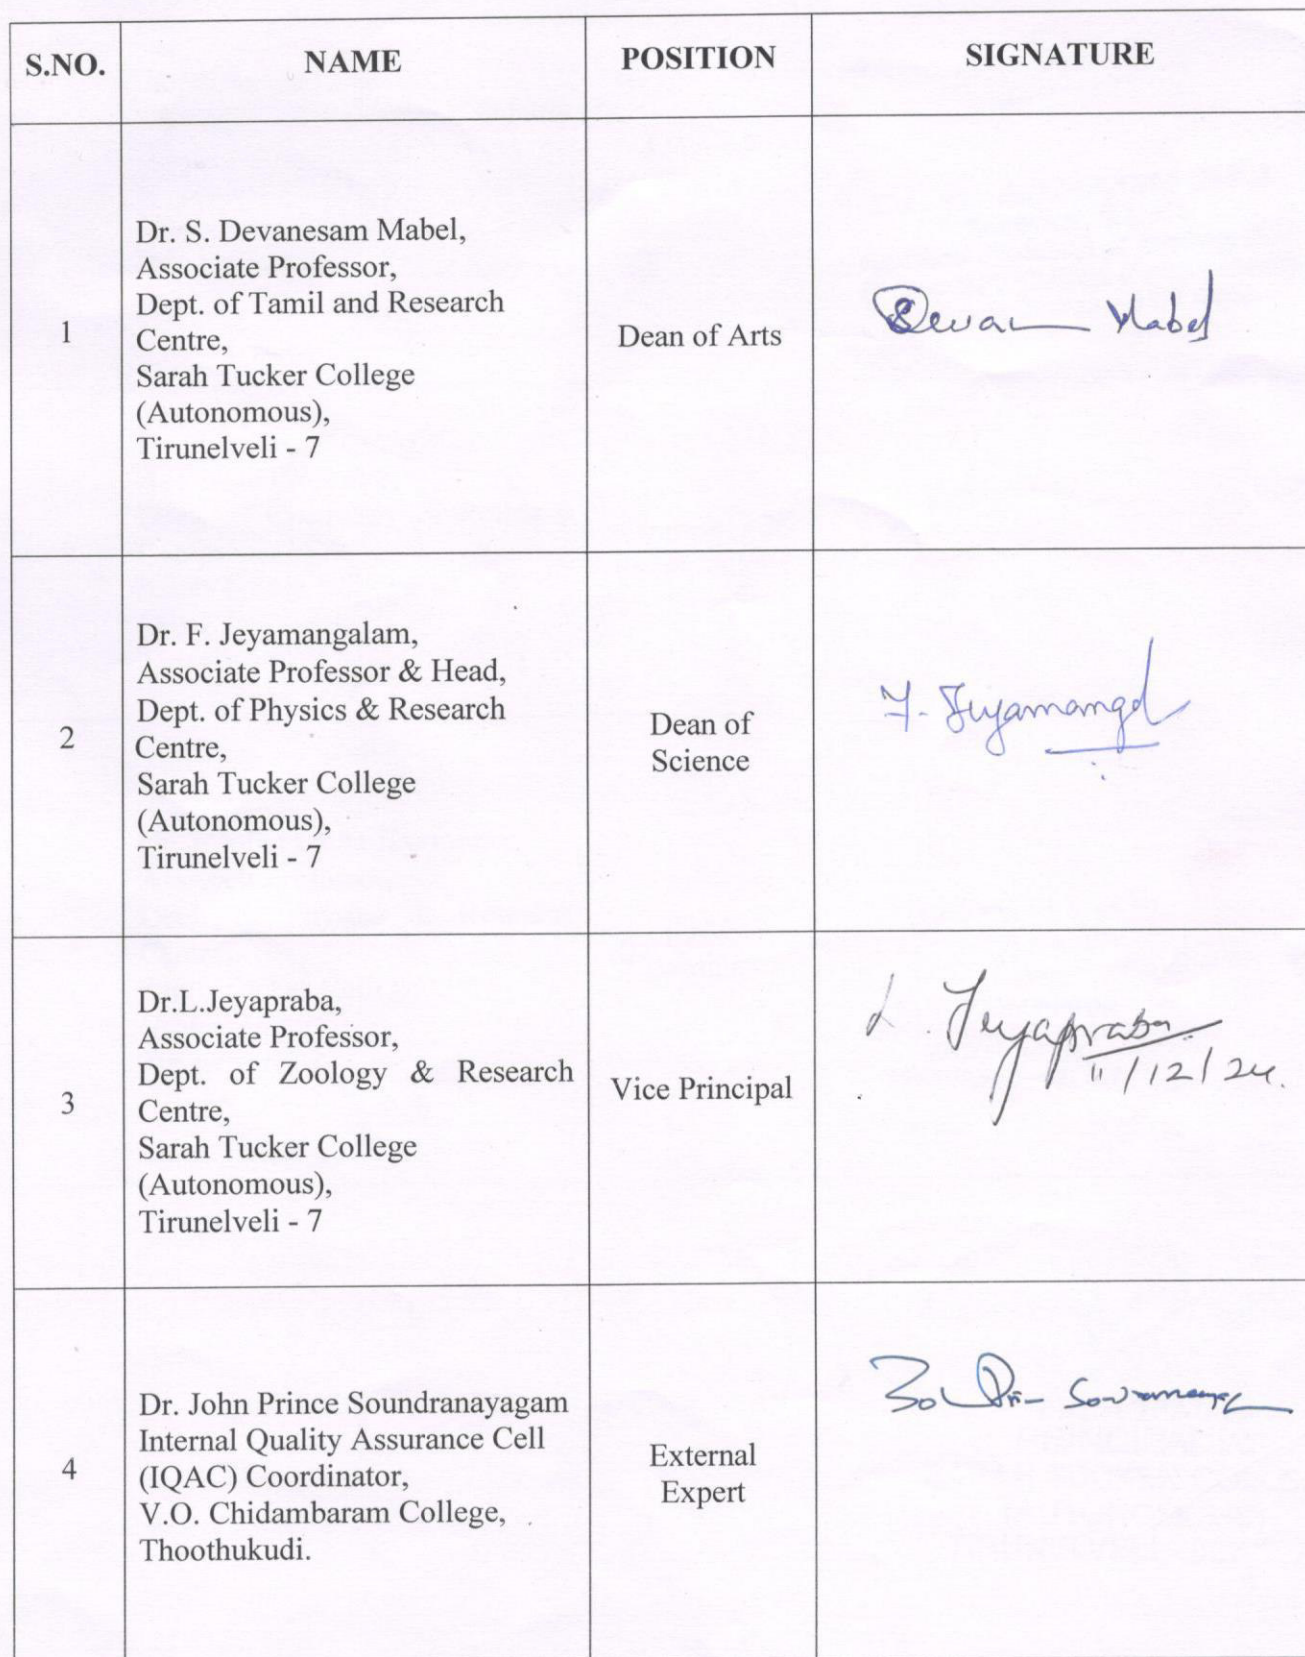 S.NO. NAME POSITION SIGNATURE
1
Dr. S. Devanesam Mabel,
Associate Professor,
Dept. of Tamil and Research
Centre,
Sarah Tucker College
(Autonomous),
Tirunelveli - 7
Dean of Arts
Devan Mabel
2
Dr. F. Jeyamangalam,
Associate Professor & Head,
Dept. of Physics & Research
Centre,
Sarah Tucker College
(Autonomous),
Tirunelveli - 7
Dean of
Science
F. Jeyamangal
3
Dr.L.Jeyapraba,
Associate Professor,
Dept. of Zoology & Research
Centre,
Sarah Tucker College
(Autonomous),
Tirunelveli - 7
Vice Principal
L. Jeyapraba
11/12/24.
4
Dr. John Prince Soundranayagam
Internal Quality Assurance Cell
(IQAC) Coordinator,
V.O. Chidambaram College,
Thoothukudi.
External
Expert